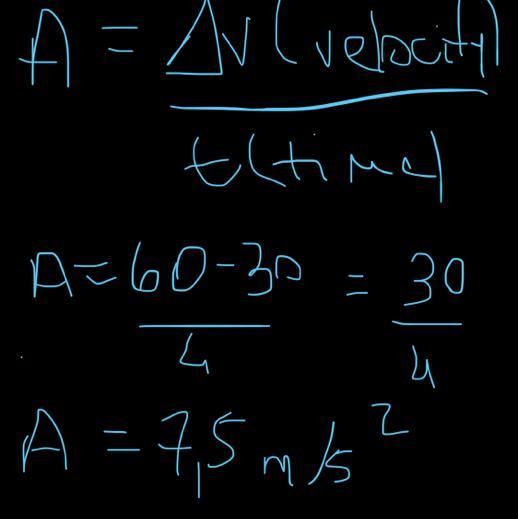 A = Δv (velocity)
t (time)
A = 60-30 = 30
4 4
A = 7,5 m/s²